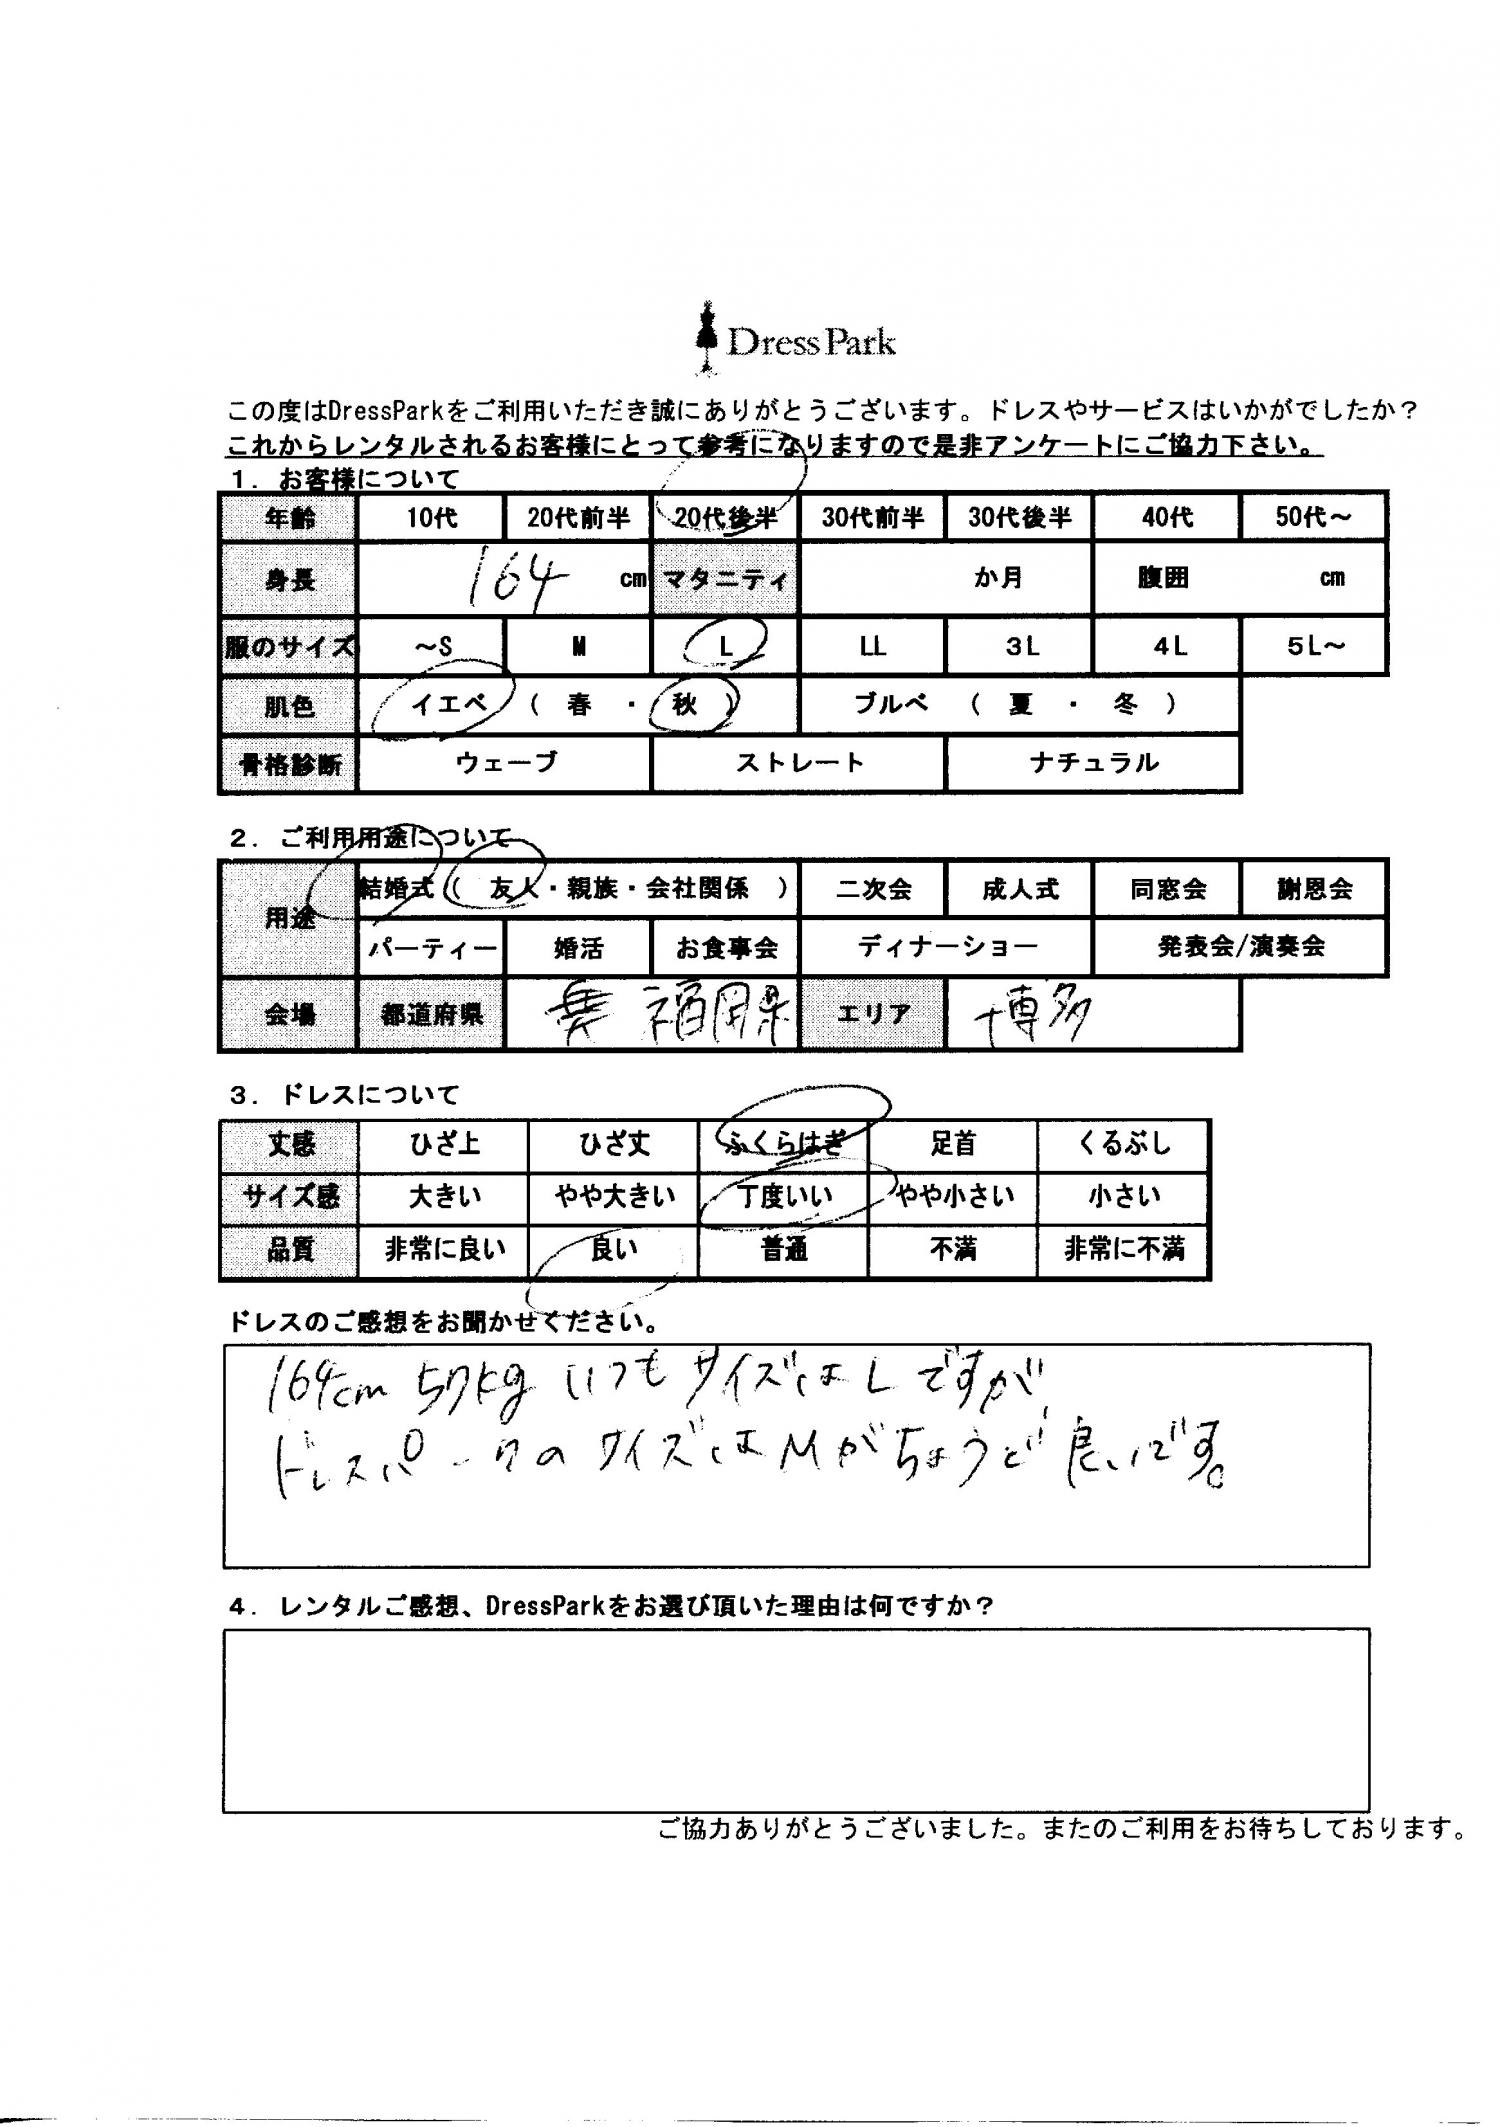 DressPark
この度はDressParkをご利用いただき誠にありがとうございます。ドレスやサービスはいかがでしたか？
これからレンタルされるお客様にとって参考になりますので是非アンケートにご協力下さい。
１．お客様について
年齢 10代 20代前半 20代後半 30代前半 30代後半 40代 50代～
身長 164 cm マタニティ か月 腹囲 cm
服のサイズ ～S M L LL 3L 4L 5L～
肌色 イエベ （ 春 ・ 秋 ） ブルベ （ 夏 ・ 冬 ）
骨格診断 ウェーブ ストレート ナチュラル
２．ご利用用途について
用途 結婚式（ 友人・親族・会社関係 ） 二次会 成人式 同窓会 謝恩会
パーティー 婚活 お食事会 ディナーショー 発表会/演奏会
会場 都道府県 福岡県 エリア 博多
３．ドレスについて
丈感 ひざ上 ひざ丈 ふくらはぎ 足首 くるぶし
サイズ感 大きい やや大きい 丁度いい やや小さい 小さい
品質 非常に良い 良い 普通 不満 非常に不満
ドレスのご感想をお聞かせください。
164cm 57kg いつもサイズはLですが、
ドレスパークのサイズはMがちょうど良いです。
４．レンタルご感想、DressParkをお選び頂いた理由は何ですか？
ご協力ありがとうございました。またのご利用をお待ちしております。